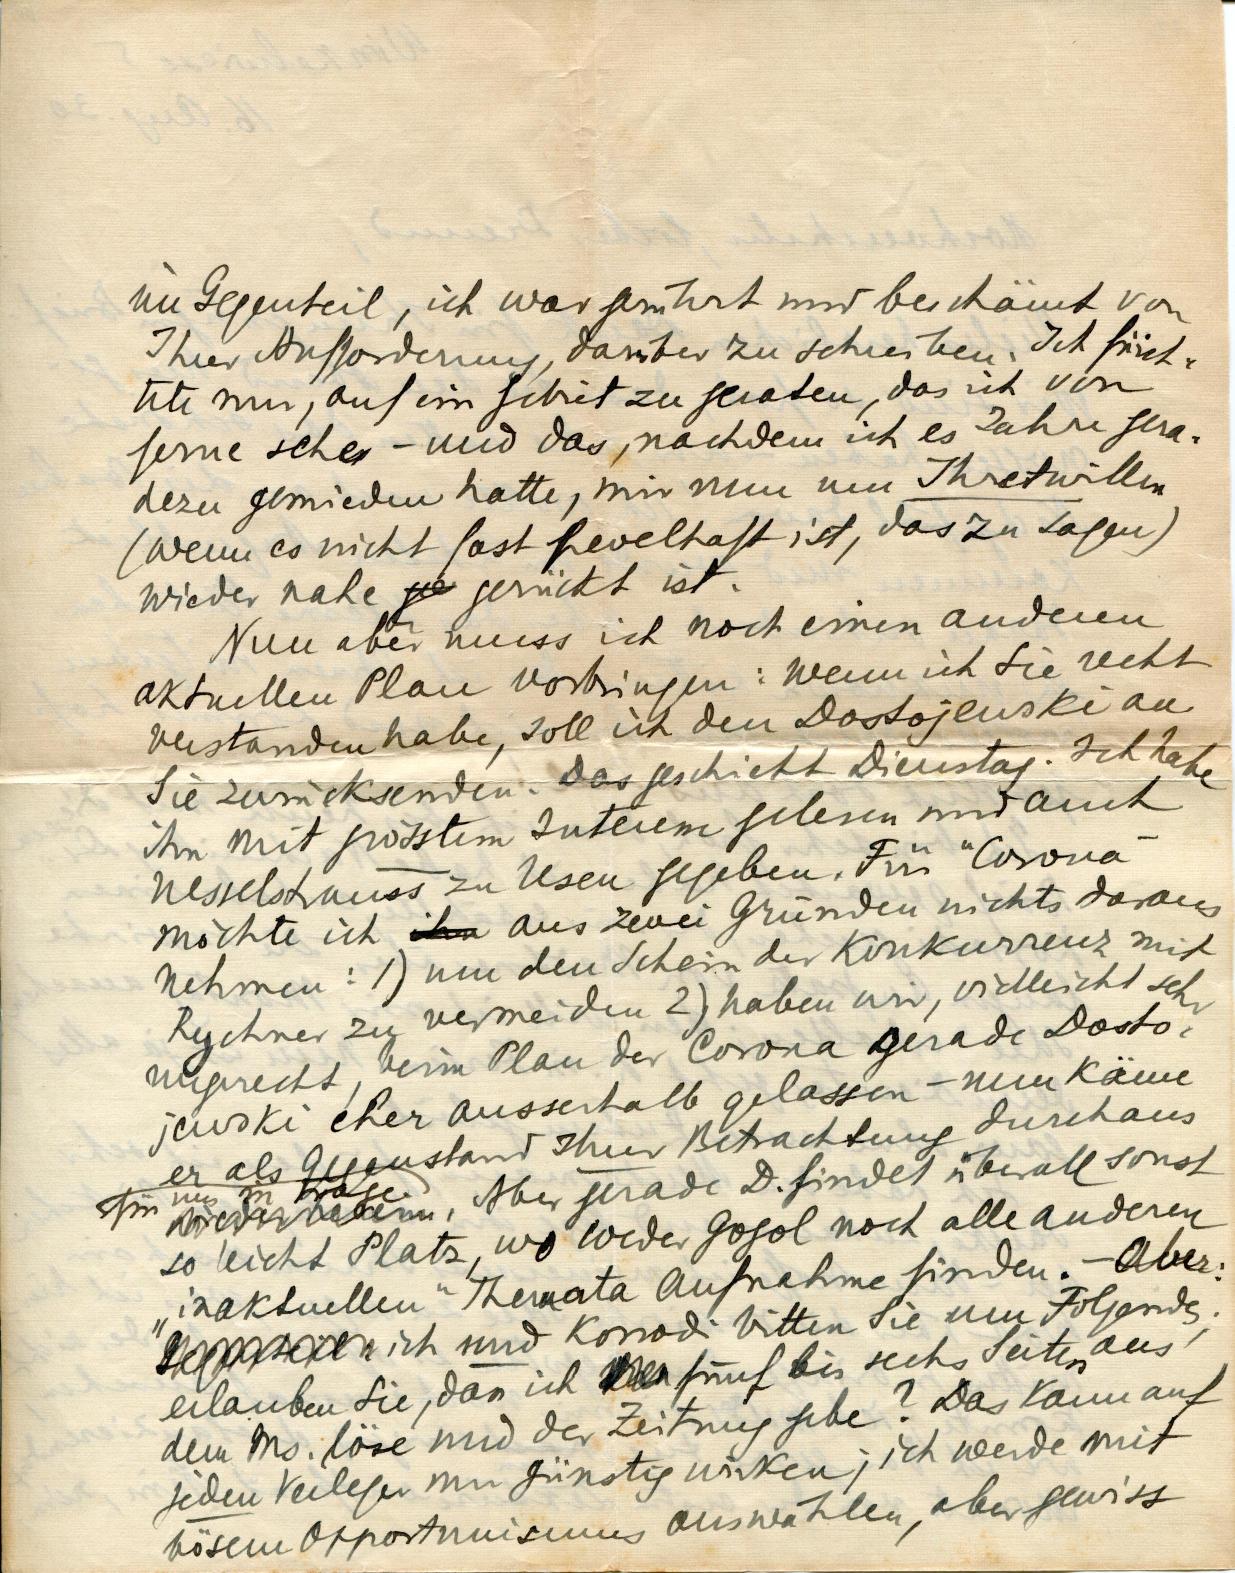 im Gegenteil, ich war gerührt und beschämt von
Ihrer Aufforderung, darüber zu schreiben. Ich fürch-
tete nur, auf ein Gebiet zu geraten, das ich von
ferne sehe – und das, nachdem ich es Jahre gera-
dezu gemieden hatte, mir nun um Ihretwillen
(wenn es nicht fast frevelhaft ist, das zu sagen)
wieder nahe ge gerückt ist.
Nun aber muss ich noch einen anderen
aktuellen Plan vorbringen: wenn ich Sie recht
verstanden habe, soll ich den Dostojewski an
Sie zurücksenden. Das geschieht Dienstag. Ich habe
ihn mit grösstem Interesse gelesen und auch
Nesselstrauss zu lesen gegeben. Für "Corona"
möchte ich ihn aus zwei Gründen nichts daraus
nehmen: 1) um den Schein der Konkurrenz mit
Rychner zu vermeiden 2) haben wir, vielleicht sehr
ungerecht, beim Plan der Corona gerade Dosto-
jewski eher ausserhalb gelassen – nun käme
er als Gegenstand Ihrer Betrachtung durchaus
für uns in Frage. Aber gerade D. findet überall sonst
so leicht Platz, wo weder Gogol noch alle anderen
„inaktuellen" Themata Aufnahme finden. – Aber:
ich und Korrodi bitten Sie um Folgendes:
erlauben Sie, dass ich fünf bis sechs Seiten aus
dem Ms. löse und der Zeitung gebe? Das kann auf
jeden Verleger nur günstig wirken; ich werde mit
bösem Opportunismus auswählen, aber gewiss